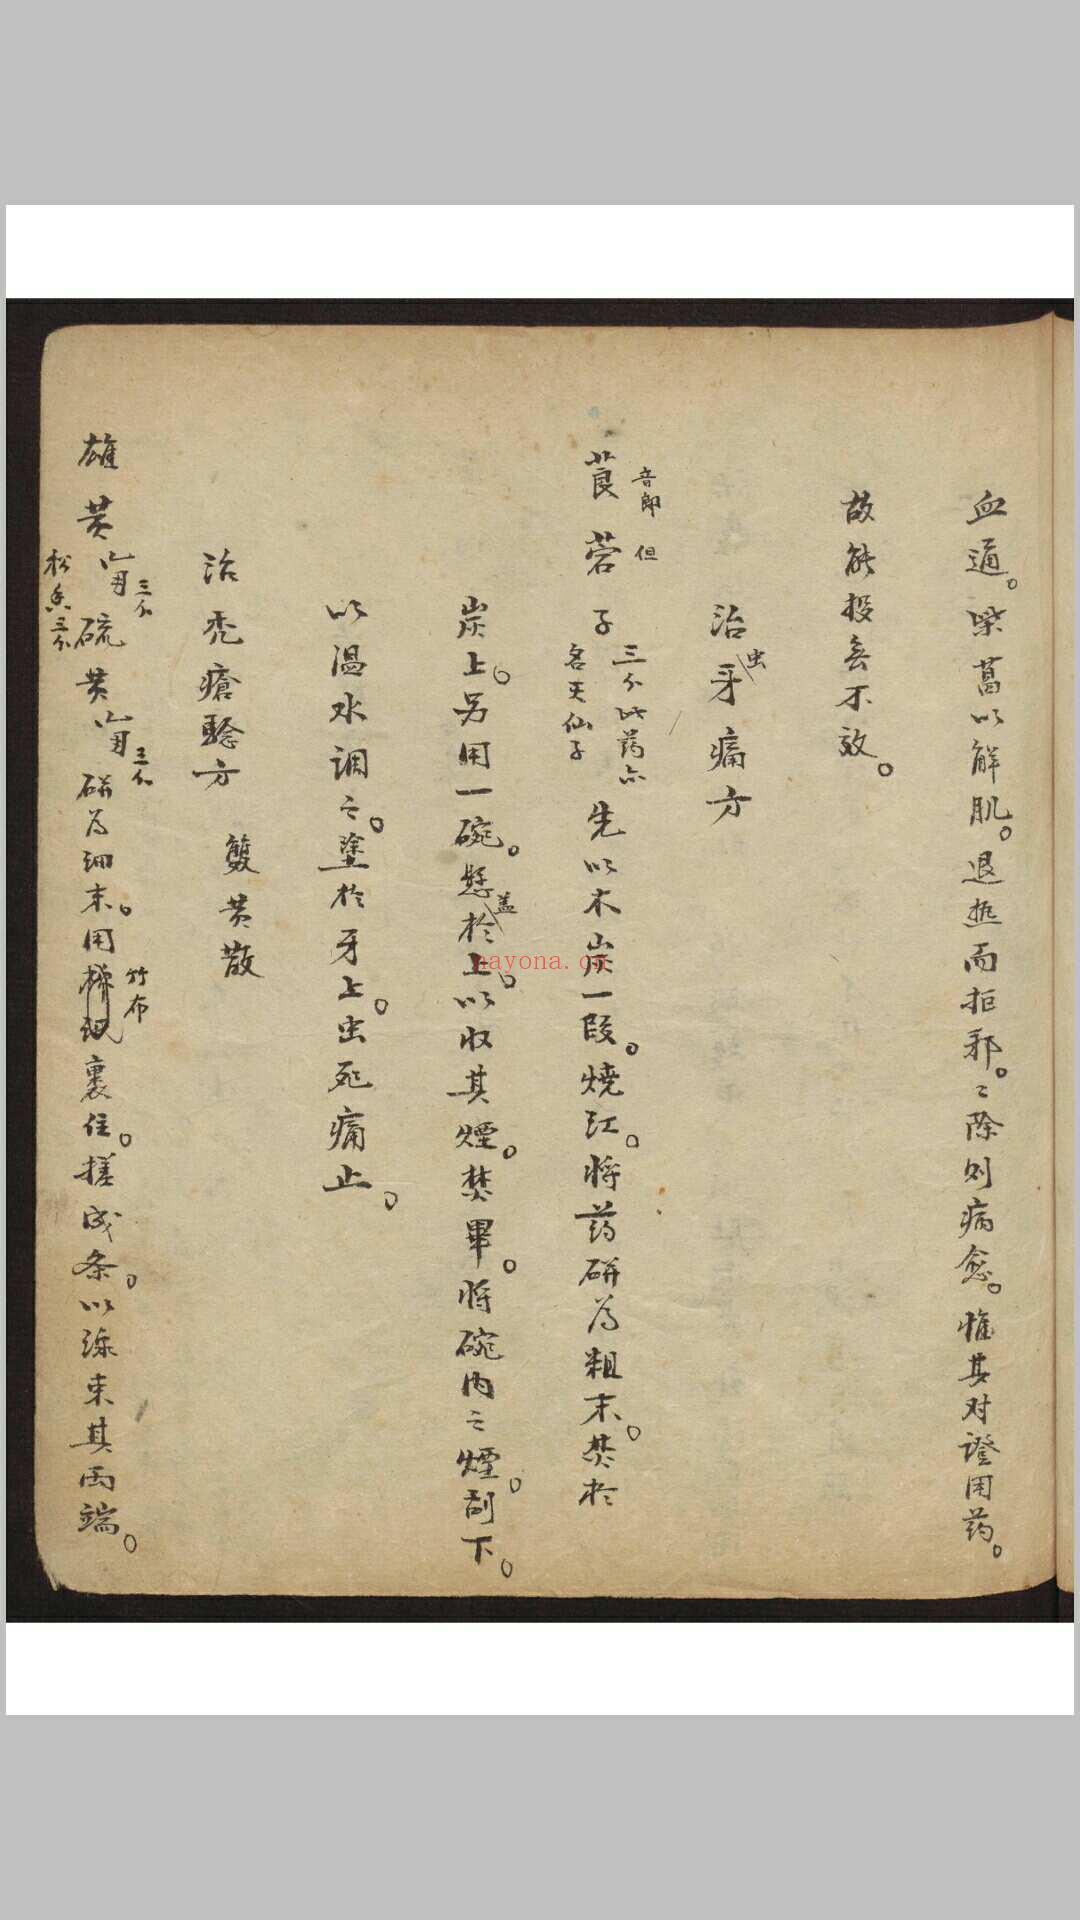 血通。柴葛以解肌。退热而拒邪。〻除则病愈。惟其对證用药。
故能投無不效。
治虫牙痛方
莨菪子 音郎 但 三分此药亦名天仙子 先以木炭一段。燒红。将药研为粗末。焚於
炭上。另用一碗。悬盖於上。以收其煙。焚畢。将碗内之煙刮下。
以温水调之。塗於牙上。虫死痛止。
治秃瘡驗方 雙黄散
雄黄 三分 硫黄 三分 松香三分 研为细末。用竹布裹住。搓成条。以綫束其两端。
nayona.cn